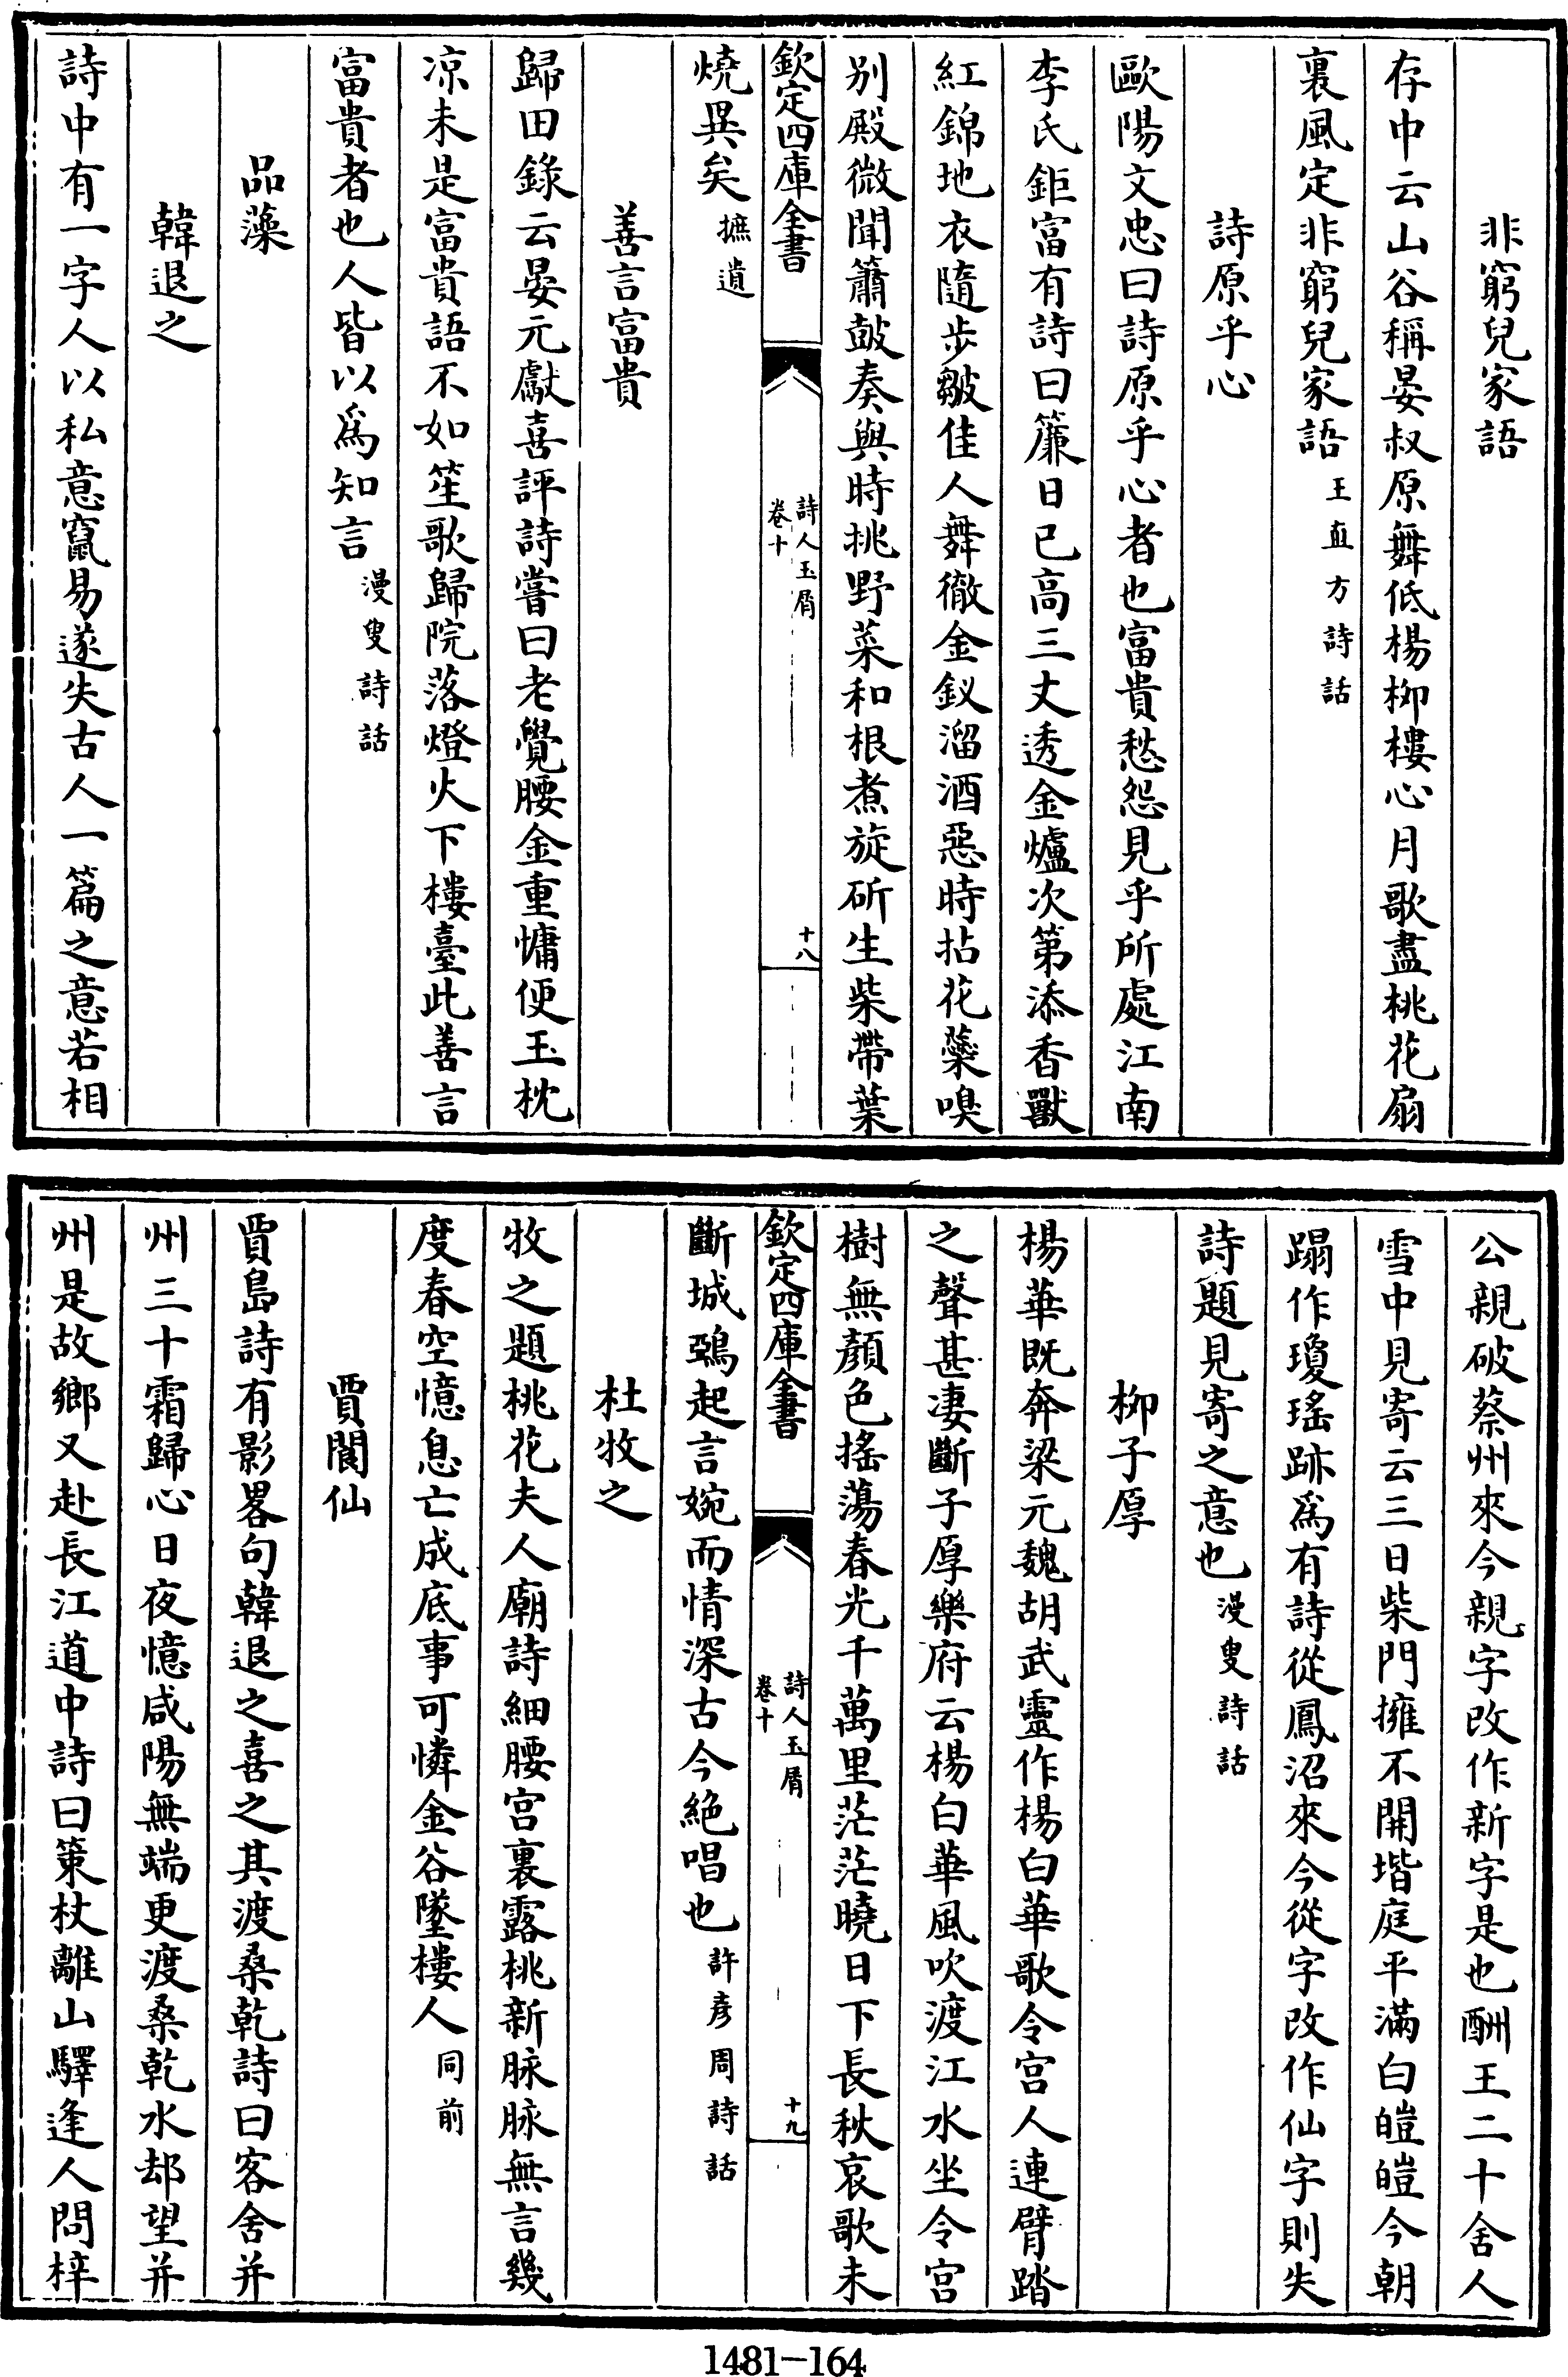 非窮兒家語
存中云山谷稱晏叔原舞低楊栁樓心月歌盡桃花扇
裏風定非窮兒家語王直方詩話
詩原乎心
歐陽文忠曰詩原乎心者也富貴愁怨見乎所處江南
李氏鉅富有詩曰簾日已高三丈透金爐次第添香獸
紅錦地衣隨步皺佳人舞徹金釵溜酒惡時拈花蘂嗅
别殿微聞簫鼓奏與時挑野菜和根煮旋斫生柴帶葉
欽定四庫全書
詩人玉屑
卷十
十八
燒異矣摭遺
善言富貴
歸田錄云晏元獻喜評詩嘗曰老覺腰金重慵便玉枕
凉未是富貴語不如笙歌歸院落燈火下樓臺此善言
富貴者也人皆以爲知言漫叟詩話
品藻
韓退之
詩中有一字人以私意竄易遂失古人一篇之意若相
公親破蔡州來今親字改作新字是也酬王二十舍人
雪中見寄云三日柴門擁不開堦庭平滿白皚皚今朝
蹋作瓊瑤跡爲有詩從鳳沼來今從字改作仙字則失
詩題見寄之意也漫叟詩話
栁子厚
楊華既奔梁元魏胡武靈作楊白華歌令宫人連臂踏
之聲甚凄斷子厚樂府云楊白華風吹渡江水坐令宫
樹無顔色搖蕩春光千萬里茫茫曉日下長秋哀歌未
欽定四庫全書
詩人玉屑
卷十
十九
斷城鴉起言婉而情深古今絶唱也許彦周詩話
杜牧之
牧之題桃花夫人廟詩細腰宫裏露桃新脉脉無言幾
度春空憶息亡成底事可憐金谷墜樓人同前
賈閬仙
賈島詩有影畧句韓退之喜之其渡桑乾詩曰客舍并
州三十霜歸心日夜憶咸陽無端更渡桑乾水却望并
州是故鄉又赴長江道中詩曰策杖離山驛逢人問梓
1481-164